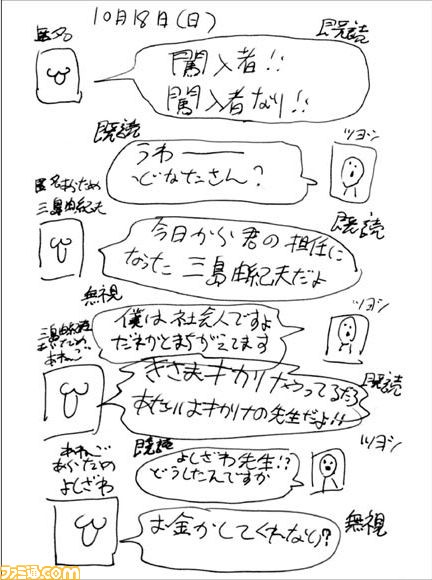 10月18日(日)
匿名
既読
闖入者!!
闖入者なり!!
既読
ツヨシ
うわーーー
どなたさん?
匿名あらため
三島由紀夫
既読
今日から君の担任に
なった三島由紀夫だよ
無視
ツヨシ
僕は社会人ですよ
だれかとまちがえてます
三島由紀夫
あらため
あねご
既読
きさまキカリナやってるだろ
あたいはキカリナの先生だよ!!
あねご
あらため
よしざわ
既読
ツヨシ
よしざわ先生!?
どうしたんですか
無視
お金かしてくれなり?
ファミ通.com